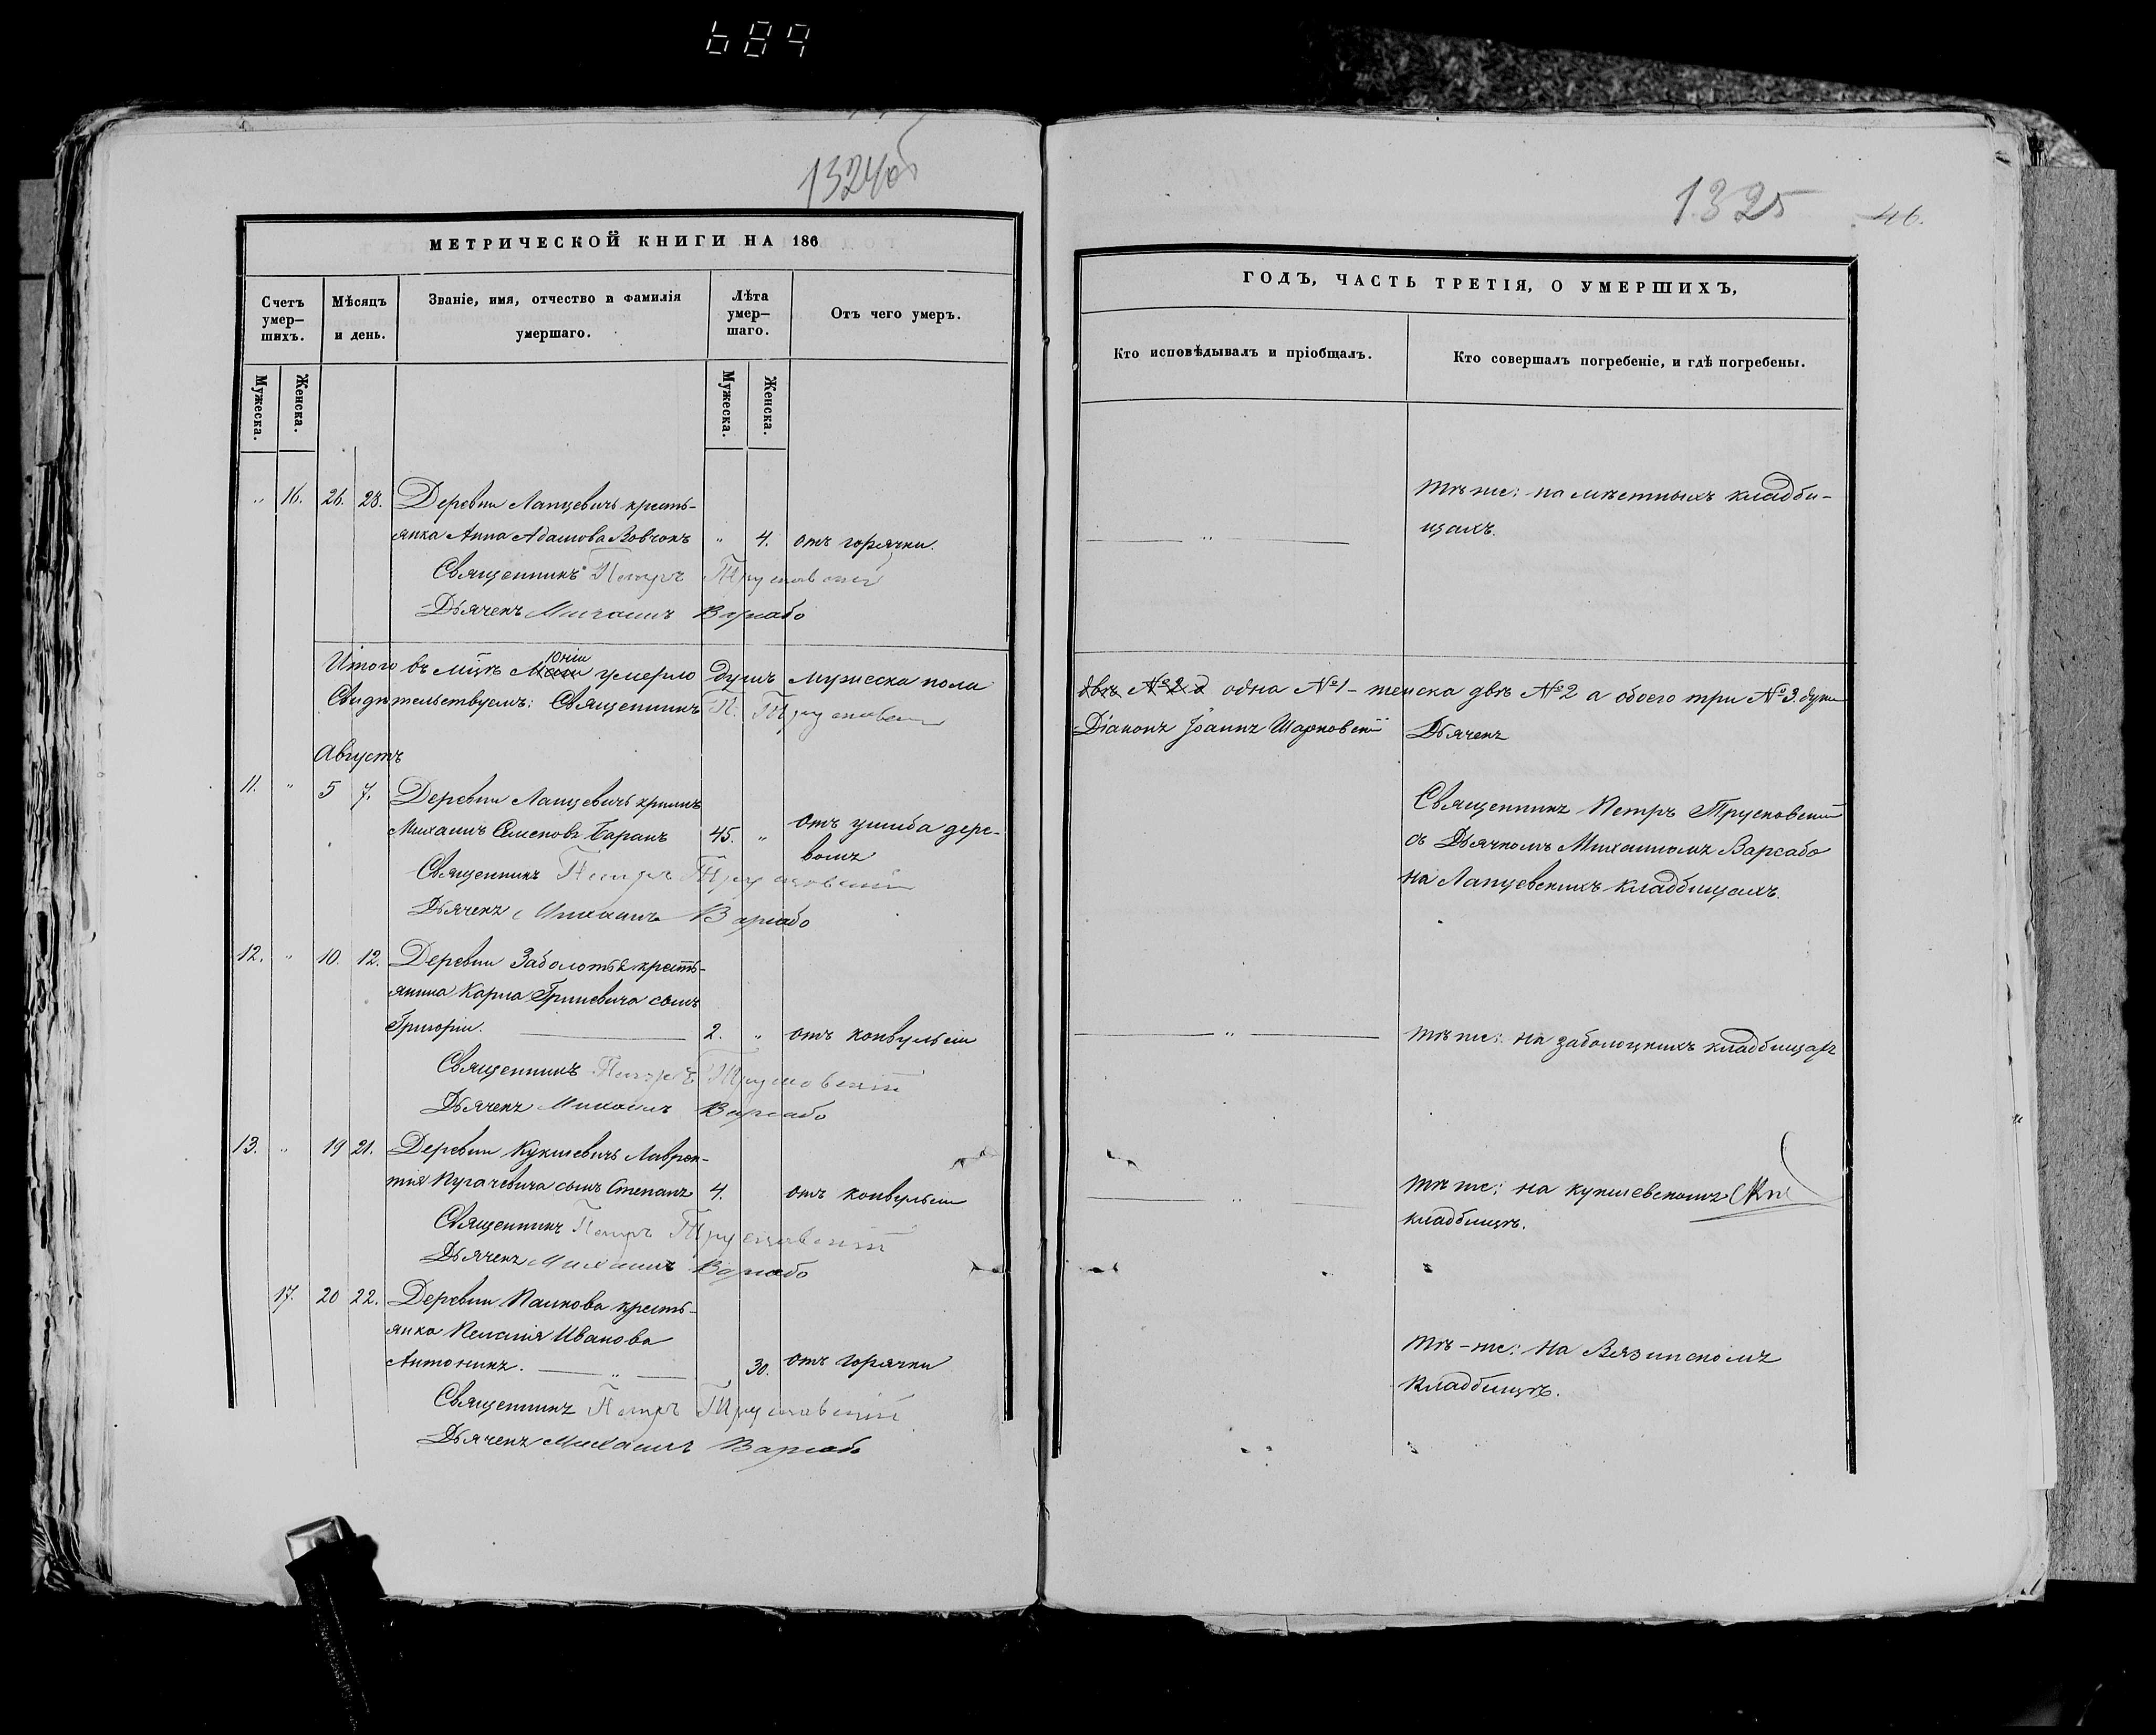 689
1324об
МЕТРИЧЕСКОЙ КНИГИ НА 186
Счетъ умер–шихъ.
Мѣсяцъ и день.
Званіе, имя, отчество и фамилія умершаго.
Лѣта умер–шаго.
Отъ чего умеръ.
Мужеска.
Женска.
Мужеска.
Женска.
„ 16. 26. 28. Деревни Лапцевичъ кресть-
янка Анна Адамова Вовчокъ „ 4. отъ горячки.
Священникъ Петръ Трусковскій
Дьячекъ Михаилъ Варсабо
Итого въ мцѣ Юліи умерло душъ мужеска пола
Свидѣтельствуемъ: Священникъ П. Трусковскій
Августъ
11. „ 5 7. Деревни Лапцевичъ крнинъ
Михаилъ Семеновъ Баранъ 45. „ отъ ушиба дере-
вомъ
Священникъ Петръ Трусковскій
Дьячекъ Михаилъ Варсабо
12. „ 10. 12. Деревни Заболотья кресть-
янина Карпа Гриневича сынъ
Григорій. 2. „ отъ конвульсіи
Священникъ Петръ Трусковскій
Дьячекъ Михаилъ Варсабо
13. „ 19 21. Деревни Кукшевичъ Лаврен-
тія Пугачевича сынъ Степанъ 4. отъ конвульсіи
Священникъ Петръ Трусковскій
Дьячекъ Михаилъ Варсабо
17. 20 22. Деревни
кресть-
янка Пелагія Иванова
Антоникъ. „ 30. отъ горячки
Священникъ Петръ Трусковскій
Дьячекъ Михаилъ Варсабо
1325
46.
ГОДЪ, ЧАСТЬ ТРЕТІЯ, О УМЕРШИХЪ,
Кто исповѣдывалъ и пріобщалъ.
Кто совершалъ погребеніе, и гдѣ погребены.
„ тѣ же: на мѣстныхъ кладби-
щахъ.
двѣ №2 одна №1 – женска двѣ №2 а обоего три №3. души
Діаконъ Іоаннъ Дьячекъ
Священникъ Петръ Трусковскій
съ Дьячкомъ Михаиломъ Варсабо
на Лапцевскихъ кладбищахъ.
„ тѣ же: на заболоцкихъ кладбищахъ
„ тѣ же: на кукшевскомъ
кладбищѣ.
тѣ-же: на Вязинскомъ
кладбищѣ.